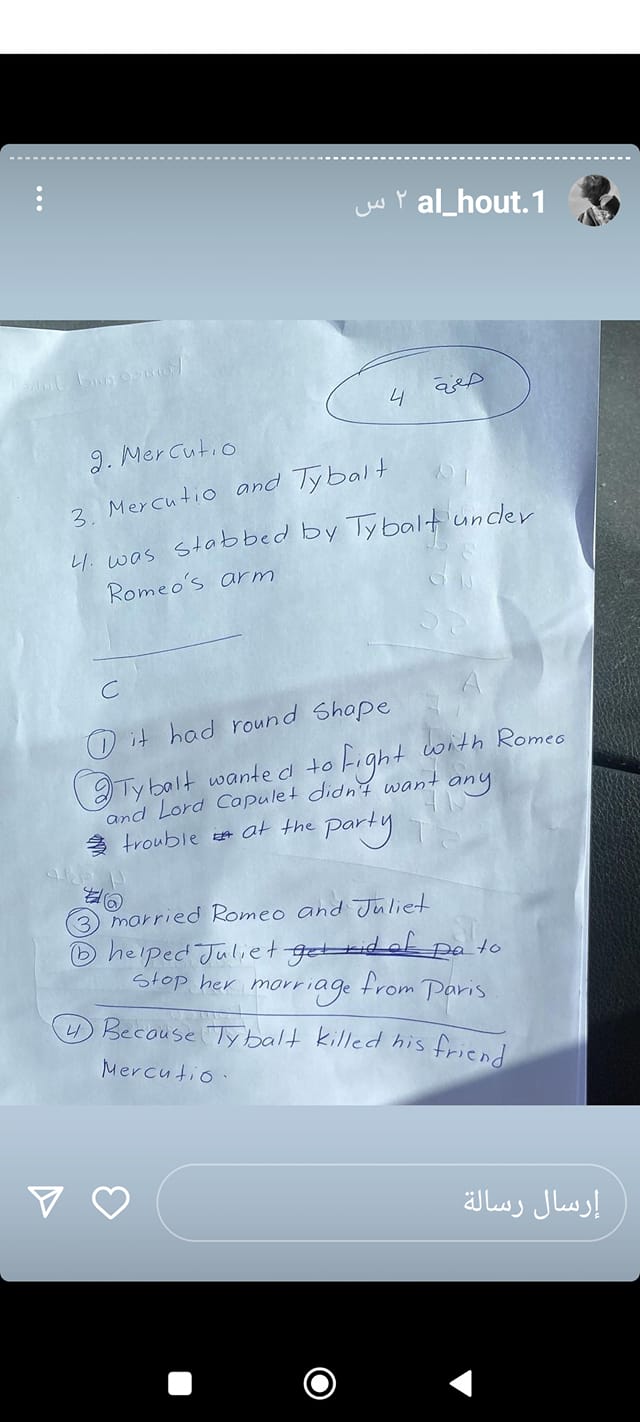 al_hout.1 ٢ س
4
2. Mercutio
3. Mercutio and Tybalt
4. was stabbed by Tybalt under
Romeo's arm
C
① it had round shape
② Tybalt wanted to fight with Romeo
and Lord Capulet didn't want any
trouble at the party
ⓐ
③ married Romeo and Juliet
ⓑ helped Juliet get rid of pa to
stop her marriage from Paris
④ Because Tybalt killed his friend
Mercutio.
إرسال رسالة